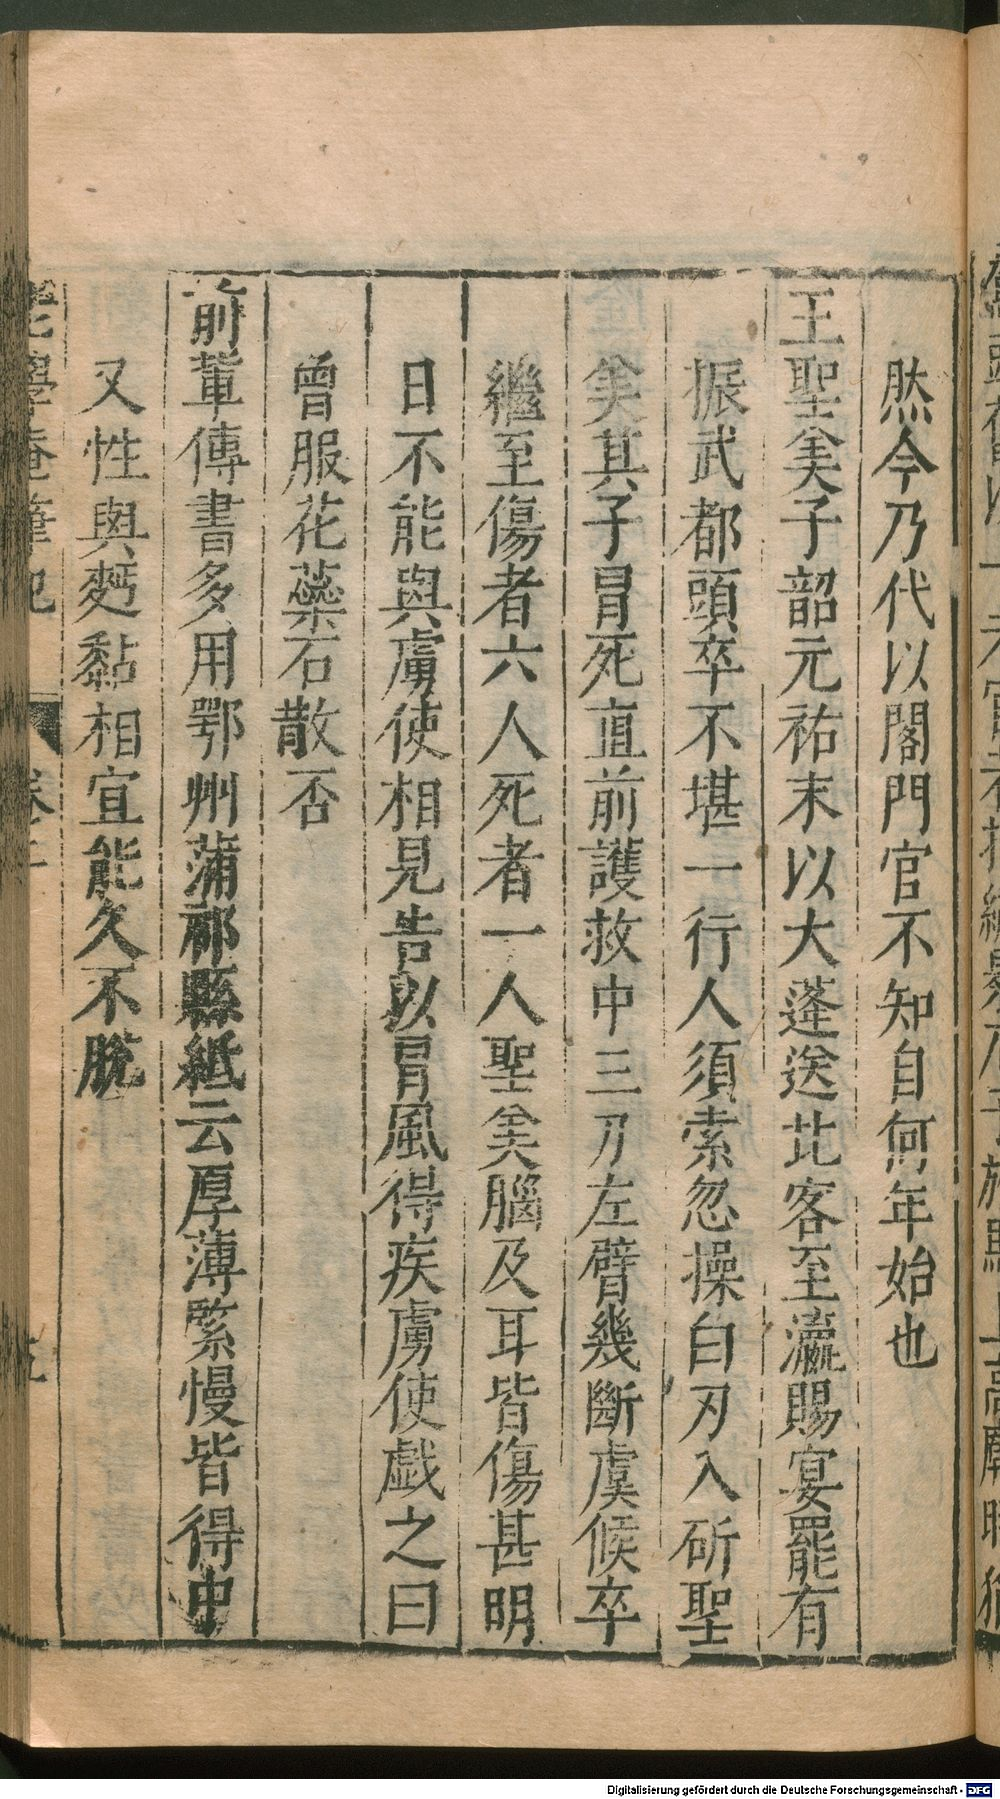 然今乃代以閣門官不知自何年始也
王聖美子韶元祐末以大蓬送北客至瀛賜宴罷有
振武都頭卒不堪一行人須索忽操白刃入斫聖
美其子冒死直前護救中三刀左臂幾斷虞候卒
繼至傷者六人死者一人聖美腦及耳皆傷甚明
日不能與虜使相見告以冒風得疾虜使戲之曰
曾服花蘂石散否
前輩傳書多用鄂州蒲祁縣紙云厚薄緊慢皆得中
又性與麪黏相宜能久不脫
老學庵筆記
卷二
五
Digitalisierung gefördert durch die Deutsche Forschungsgemeinschaft - DFG